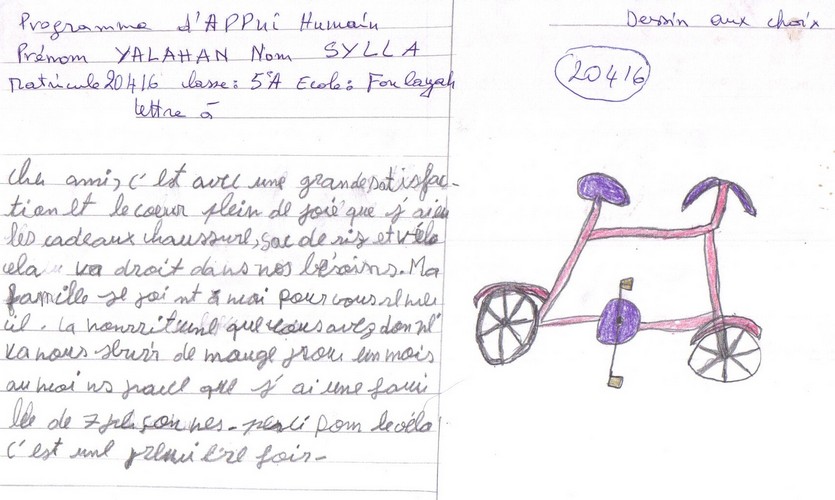 Programme d'APPui Humain
Prénom YALAHAN Nom SYLLA
Matricule 20416 classe: 5ºA Ecole: Foulayah
lettre à
cher ami, c'est avec une grande satisfac-
tion et le coeur plein de joie que j'ai eu
les cadeaux chaussure, sac de riz et vélo
cela va droit dans nos besoins. Ma
famille se joint à moi pour vous
la nourriture que vous avez donné
va nous de mange pour un mois
au moins parce que j'ai une fami
lle de 7 personnes. merci pour le vélo
c'est une première fois-
Dessin aux choix
20416